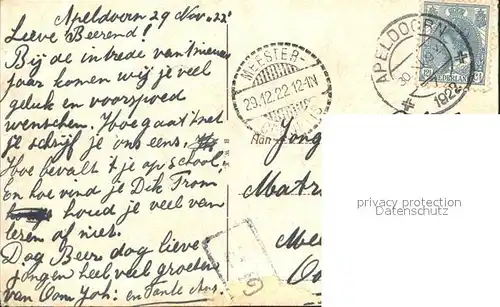 Apeldoorn 29 Nov. 22.
Lieve Beerend!
Bij de intrede van 't nieuwe
jaar komen wij je veel
geluk en voorspoed
wenschen. Hoe gaat het
je schrijf je ons eens.
Hoe bevalt 't je op school,
en hoe vind je Dik Trom
houd je veel van
lezen of niet.
Dag Beer dag lieve
jongen heel veel groeten
van Oom Joh: en Tante
MEESTER-
29.12.22.12-1N
APELDOORN
1922
NEDERLAND
Aan
Jong
Matr
Mee
privacy protection
Datenschutz